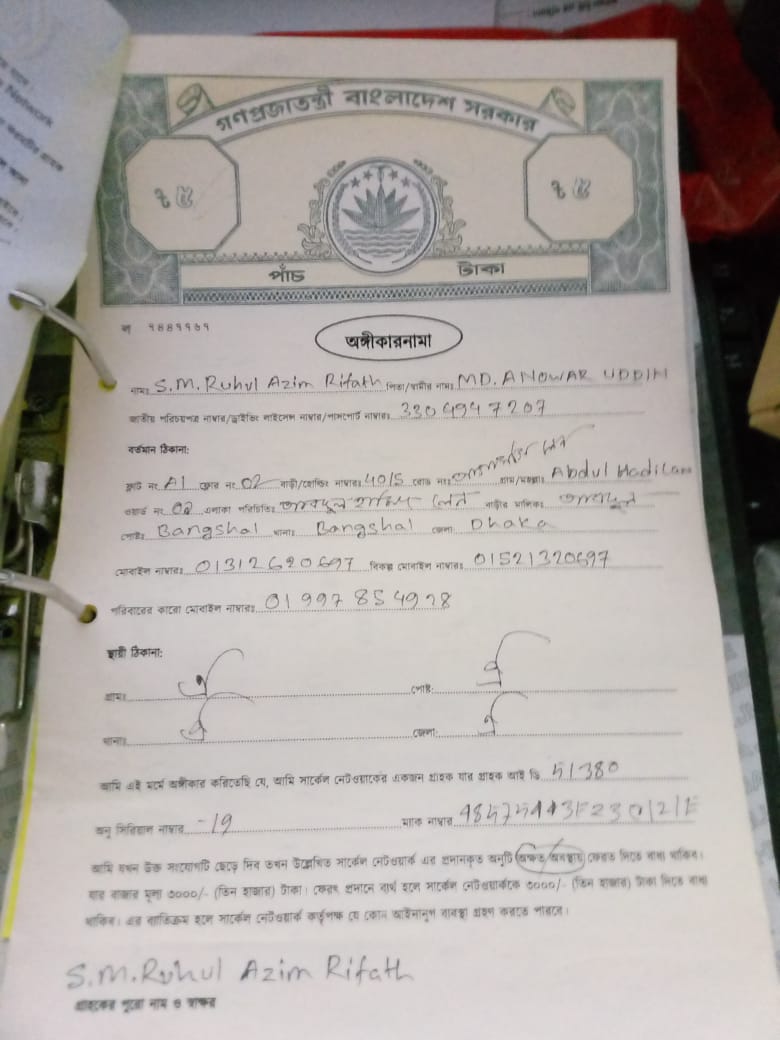 গণপ্রজাতন্ত্রী বাংলাদেশ সরকার
৳ ৫ ৳ ৫
পাঁচ টাকা
অঙ্গীকারনামা
নামঃ S.M. Ruhul Azim Rifath পিতা/স্বামীর নামঃ MD. ANOWAR UDDIN
জাতীয় পরিচয়পত্র নাম্বার/ড্রাইভিং লাইসেন্স নাম্বার/পাসপোর্ট নাম্বারঃ 3304947207
বর্তমান ঠিকানা:
ফ্লাট নং A1 ফ্লোর নং 02 বাড়ী/হোল্ডিং নাম্বারঃ 40/5 রোড নং গ্রাম/মহল্লাঃ Abdul Hadi Lane
ওয়ার্ড নং এলাকা পরিচিতিঃ লেন বাড়ীর মালিকঃ আবদুল
পোষ্টঃ Bangshal থানাঃ Bangshal জেলা Dhaka
মোবাইল নাম্বারঃ 01312620697 বিকল্প মোবাইল নাম্বারঃ 01521320697
পরিবারের কারো মোবাইল নাম্বারঃ 01997854928
স্থায়ী ঠিকানা:
গ্রামঃ ঐ পোষ্ট: ঐ
থানাঃ ঐ জেলা: ঐ
আমি এই মর্মে অঙ্গীকার করিতেছি যে, আমি সার্কেল নেটওয়াকের একজন গ্রাহক যার গ্রাহক আই ডি 51380
অনু সিরিয়াল নাম্বার -19 ম্যাক নাম্বার
আমি যখন উক্ত সংযোগটি ছেড়ে দিব তখন উল্লেখিত সার্কেল নেটওয়ার্ক এর প্রদানকৃত অনুটি অক্ষত অবস্থায় ফেরত দিতে বাধ্য থাকিব।
যার বাজার মূল্য ৩০০০/- (তিন হাজার) টাকা। ফেরৎ প্রদানে ব্যর্থ হলে সার্কেল নেটওয়ার্ককে ৩০০০/- (তিন হাজার) টাকা দিতে বাধ্য
থাকিব। এর ব্যতিক্রম হলে সার্কেল নেটওয়ার্ক কর্তৃপক্ষ যে কোন আইনানুগ ব্যবস্থা গ্রহণ করতে পারবে।
S.M. Ruhul Azim Rifath
গ্রাহকের পুরো নাম ও স্বাক্ষর